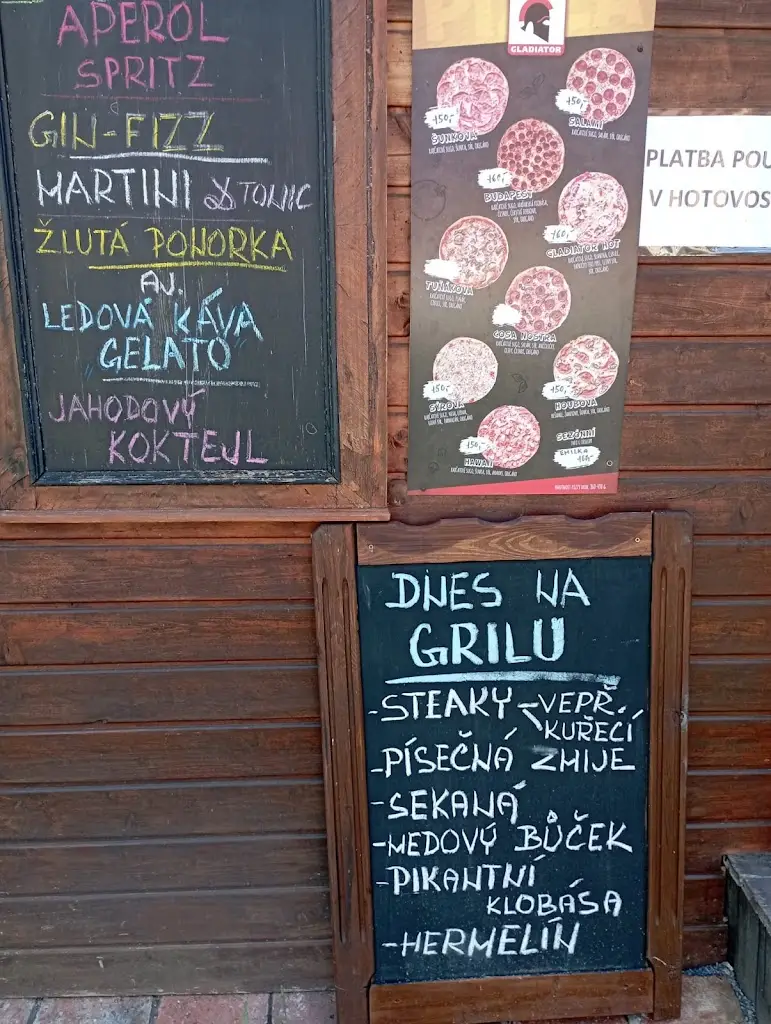 APEROL
SPRITZ
GIN-FIZZ
MARTINI & TONIC
ŽLUTÁ PONORKA
AJ.
LEDOVÁ KÁVA
GELATO
JAHODOVÝ
KOKTEJL
GLADIATOR
150,-
ŠUNKOVÁ
150,-
SALÁMI
160,-
BUDAPEŠŤ
160,-
GLADIATOR HOT
TUŇÁKOVÁ
COSA NOSTRA
150,-
SÝROVÁ
150,-
HOUBOVÁ
150,-
HAWAII
SEZÓNNÍ
160,-
PLATBA POU
V HOTOVOS
DNES NA
GRILU
-STEAKY-VEPŘ.
KUŘECÍ
-PÍSEČNÁ ZMIJE
-SEKANÁ
-MEDOVÝ BŮČEK
-PIKANTNÍ
KLOBÁSA
-HERMELÍN